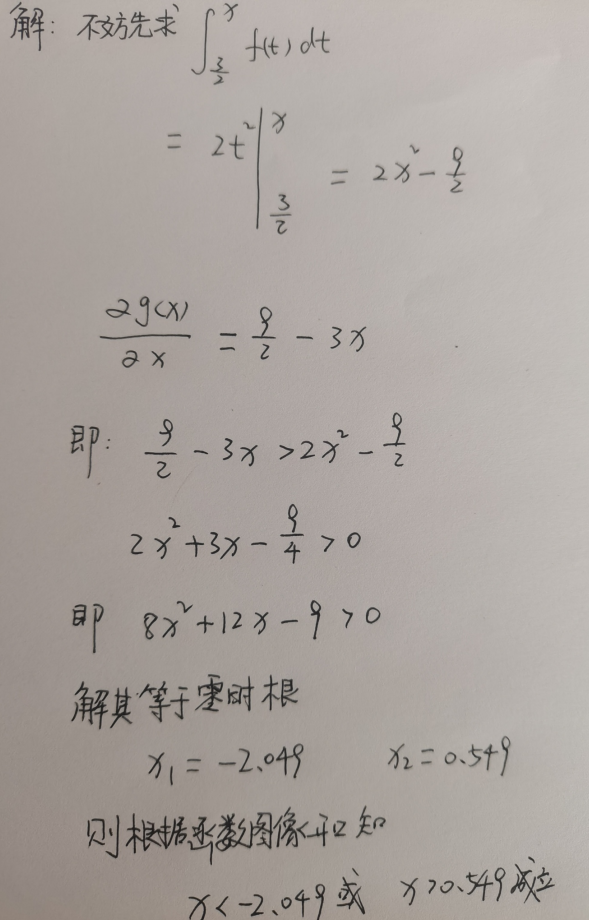 解: 不妨先求 ∫_{3/2}^{x} f(t) dt
= 2t² |_{3/2}^{x} = 2x² - 9/2
2g(x)/2x = 9/2 - 3x
即: 9/2 - 3x > 2x² - 9/2
2x² + 3x - 9/4 > 0
即 8x² + 12x - 9 > 0
解其等于零时根
x₁ = -2.049 x₂ = 0.549
则根据函数图像可知
x < -2.049 或 x > 0.549 成立